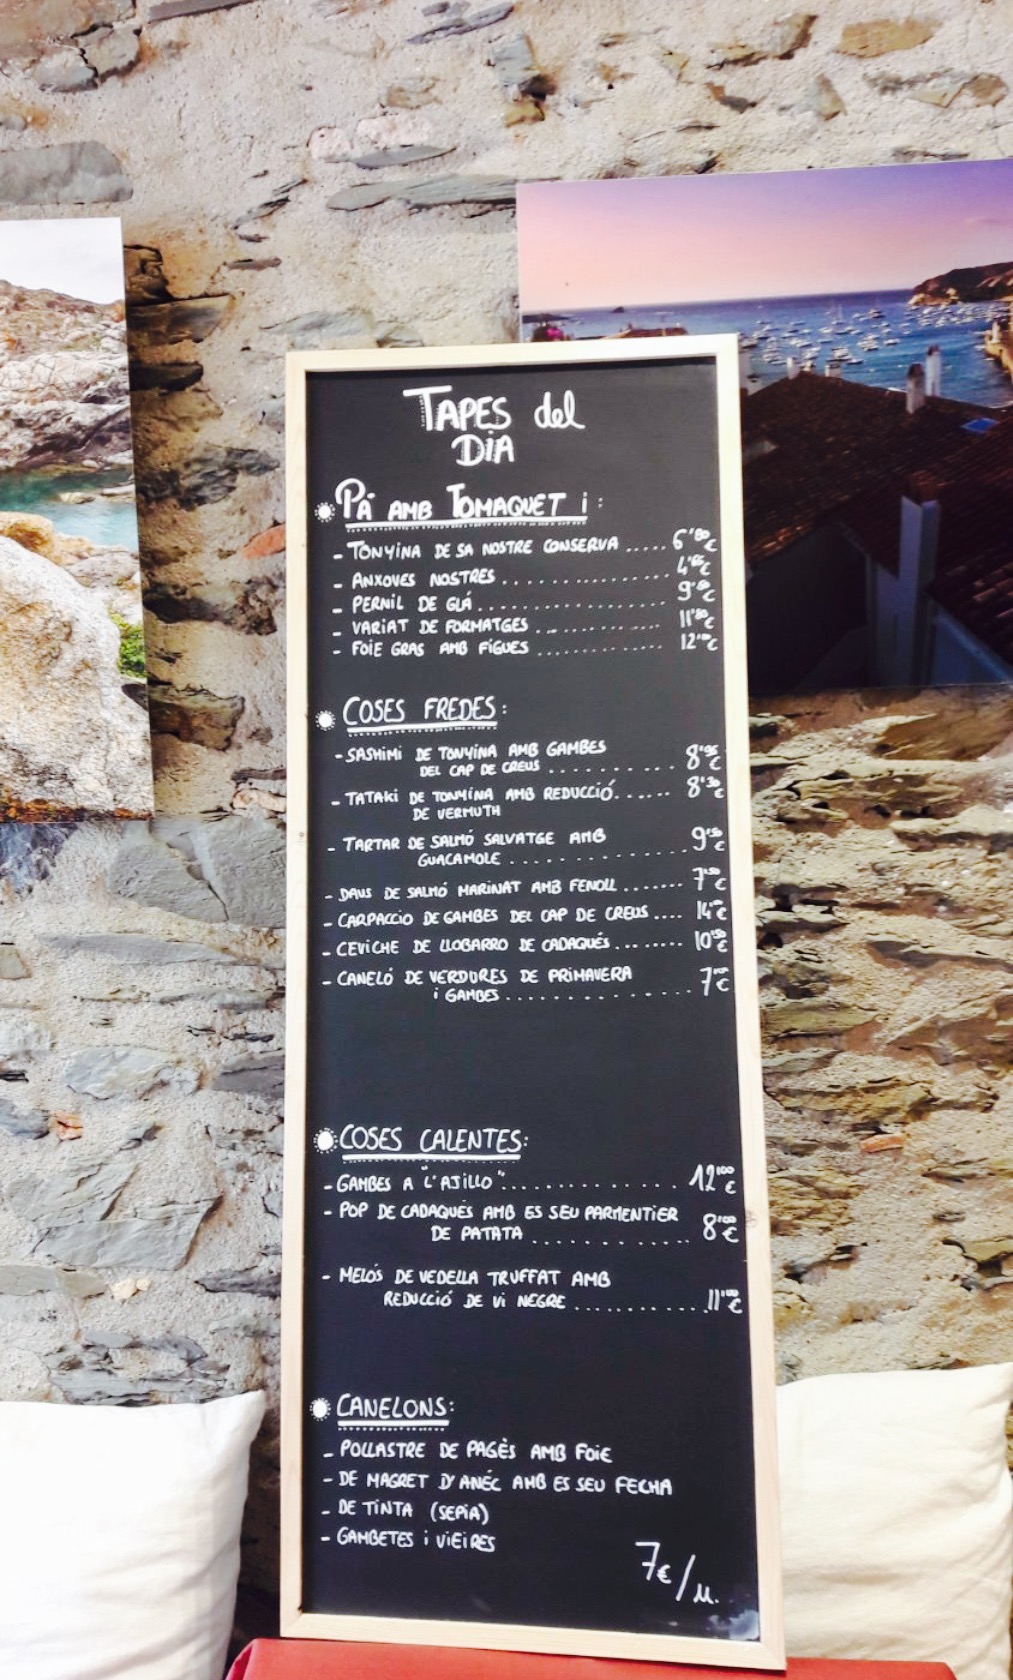 TAPES del
DIA
PÀ AMB TOMAQUET i :
- TONYINA DE SA NOSTRE CONSERVA ..... 6'80€
- ANXOVES NOSTRES ..................
- PERNIL DE GLÁ ....................
- VARIAT DE FORMATGES .............. 11'80€
- FOIE GRAS AMB FIGUES ............. 12'00€
COSES FREDES :
- SASHIMI DE TONYINA AMB GAMBES
DEL CAP DE CREUS ........... 8'95€
- TATAKI DE TONYINA AMB REDUCCIÓ...... 8'50€
DE VERMUTH
- TARTAR DE SALMÓ SALVATGE AMB
GUACAMOLE .............. 9'50€
- DAUS DE SALMÓ MARINAT AMB FENOLL ....... 7'50€
- CARPACCIO DE GAMBES DEL CAP DE CREUS .... 14'00€
- CEVICHE DE LLOBARRO DE CADAQUÉS ........ 10'50€
- CANELÓ DE VERDURES DE PRIMAVERA
i GAMBES ............... 7'00€
COSES CALENTES:
- GAMBES A "L'AJILLO" ............. 12'00€
- POP DE CADAQUÉS AMB ES SEU PARMENTIER
DE PATATA ............ 8'00€
- MELÓS DE VEDELLA TRUFFAT AMB
REDUCCIÓ DE VI NEGRE ............ 11'00€
CANELONS:
- POLLASTRE DE PAGÈS AMB FOIE
- DE MAGRET D'ANÉC AMB ES SEU FECHA
- DE TINTA (SEPIA)
- GAMBETES i VIEIRES
7€/u.